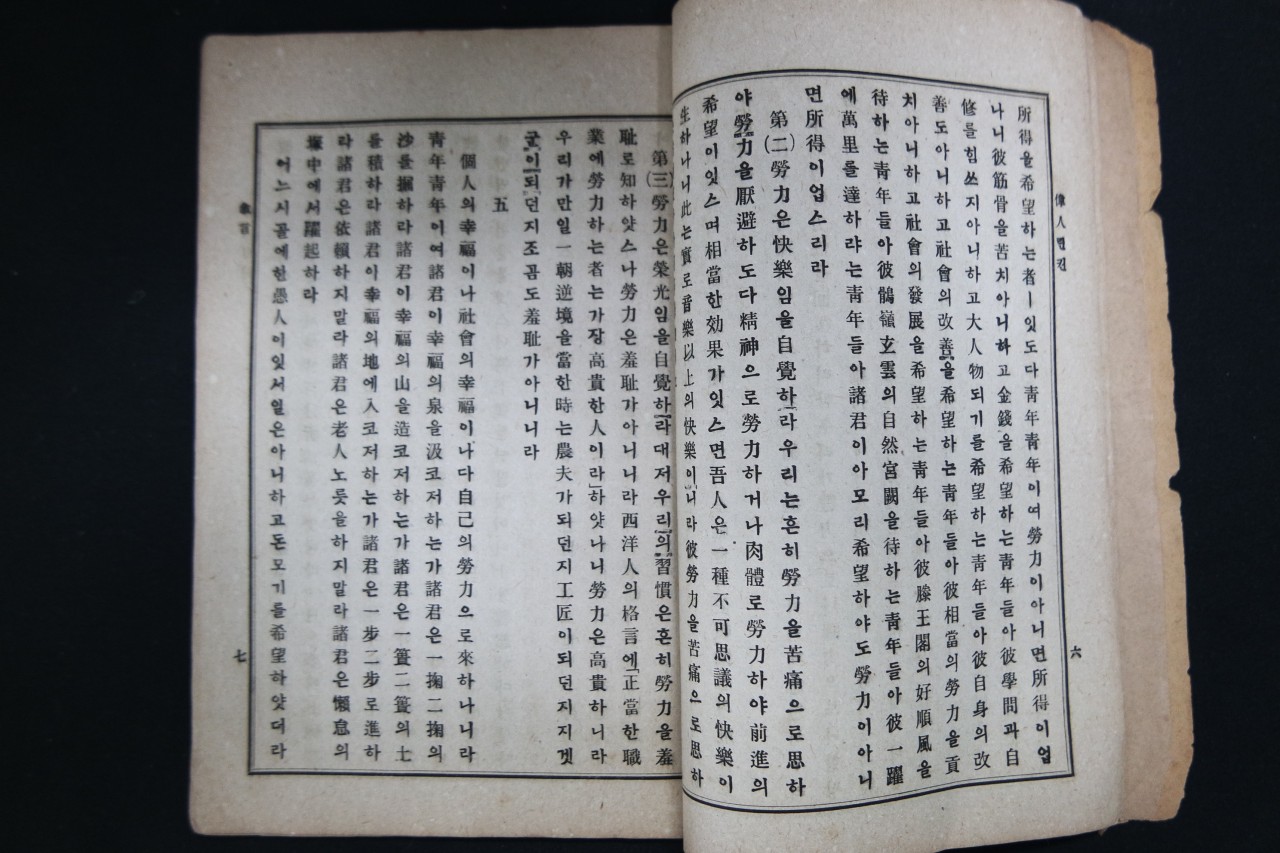 偉人면긴
所得을希望하는者ㅣ잇도다靑年靑年이여勞力이아니면所得이업
나니彼筋骨을苦치아니하고金錢을希望하는靑年들아彼學問과自
修를힘쓰지아니하고大人物되기를希望하는靑年들아彼自身의改
善도아니하고社會의改善을希望하는靑年들아彼相當의勞力을貢
치아니하고社會의發展을希望하는靑年들아彼滕王閣의好順風을
待하는靑年들아彼鶻嶺玄雲의自然宮闕을待하는靑年들아彼一躍
에萬里를達하랴는靑年들아諸君이아모리希望하야도勞力이아니
면所得이업스리라
第(二)勞力은快樂임을自覺하라우리는흔히勞力을苦痛으로思하
야勞力을厭避하도다精神으로勞力하거나肉體로勞力하야前進의
希望이잇스며相當한効果가잇스면吾人은一種不可思議의快樂이
生하나니此는實로音樂以上의快樂이니라彼勞力을苦痛으로思하
六
第(三)勞力은榮光임을自覺하라대저우리의習慣은흔히勞力을羞
耻로知하얏스나勞力은羞耻가아니니라西洋人의格言에「正當한職
業에勞力하는者는가장高貴한人이라」하얏나니勞力은高貴하니라
우리가만일一朝逆境을當한時는農夫가되던지工匠이되던지지겟
군이되던지조곰도羞耻가아니니라
五
個人의幸福이나社會의幸福이나다自己의勞力으로來하나니라
靑年靑年이여諸君이幸福의泉을汲코저하는가諸君은一掬二掬의
沙를掘하라諸君이幸福의山을造코저하는가諸君은一簣二簣의土
를積하라諸君이幸福의地에入코저하는가諸君은一步二步로進하
라諸君은依賴하지말라諸君은老人노릇을하지말라諸君은懶怠의
塚中에서躍起하라
어느시골에한愚人이잇서일은아니하고돈모기를希望하얏더라
七